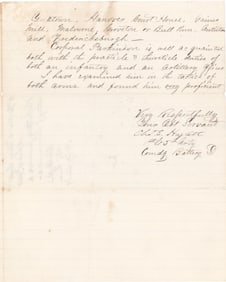 Hanover Court House, Gaines
Mill, Malvern, or Bull Run,
and Fredericksburgh —
Corporal Parkinson is well acquainted
both with the practical & theoretical duties of
both an infantry and an artillery
I have examined him in the tactics of
both arms and found him very proficient
Very Respectfully
Your Obt Servant
Comdg Battery D